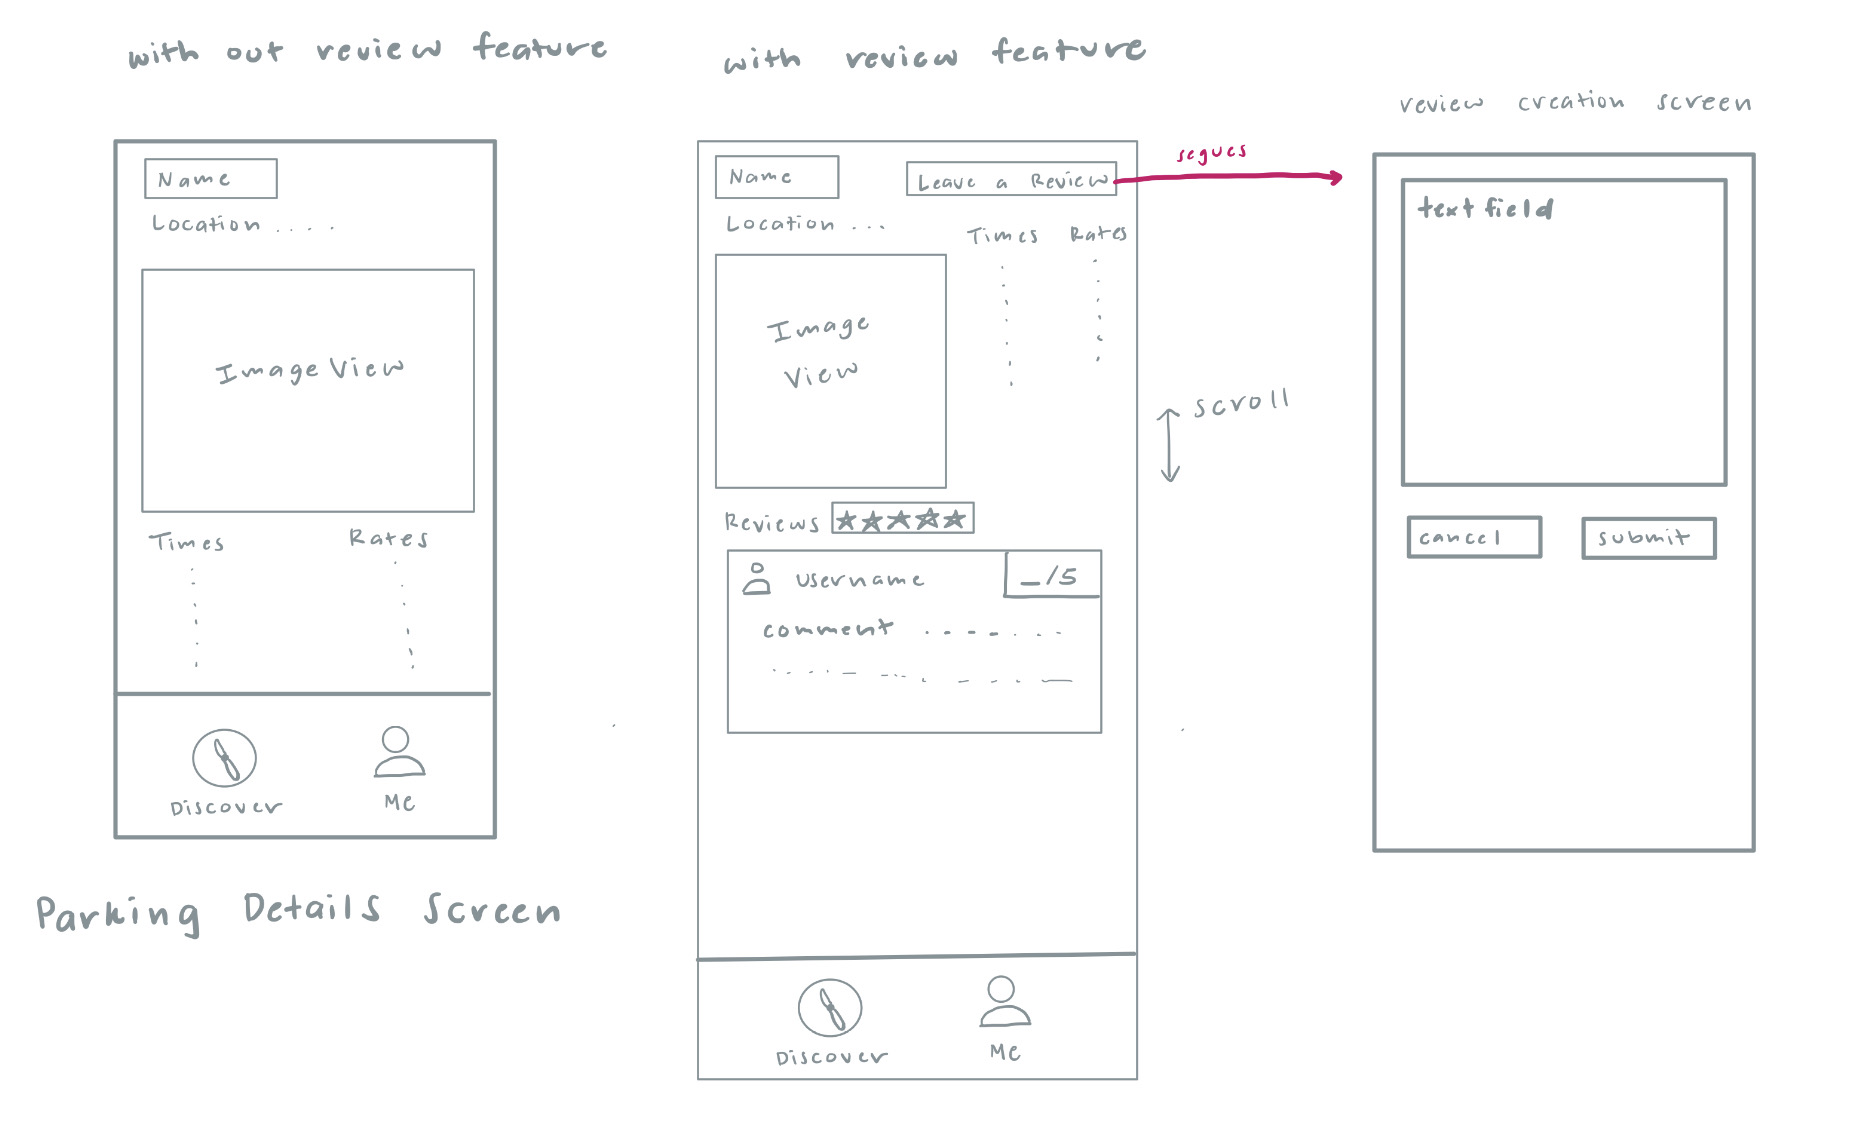 with out review feature
Name
Location ....
Image View
Times Rates
Discover Me
Parking Details Screen
with review feature
Name Leave a Review
segues
Location ...
Times Rates
Image
View
scroll
Reviews
username _/5
comment
Discover Me
review creation screen
text field
cancel submit